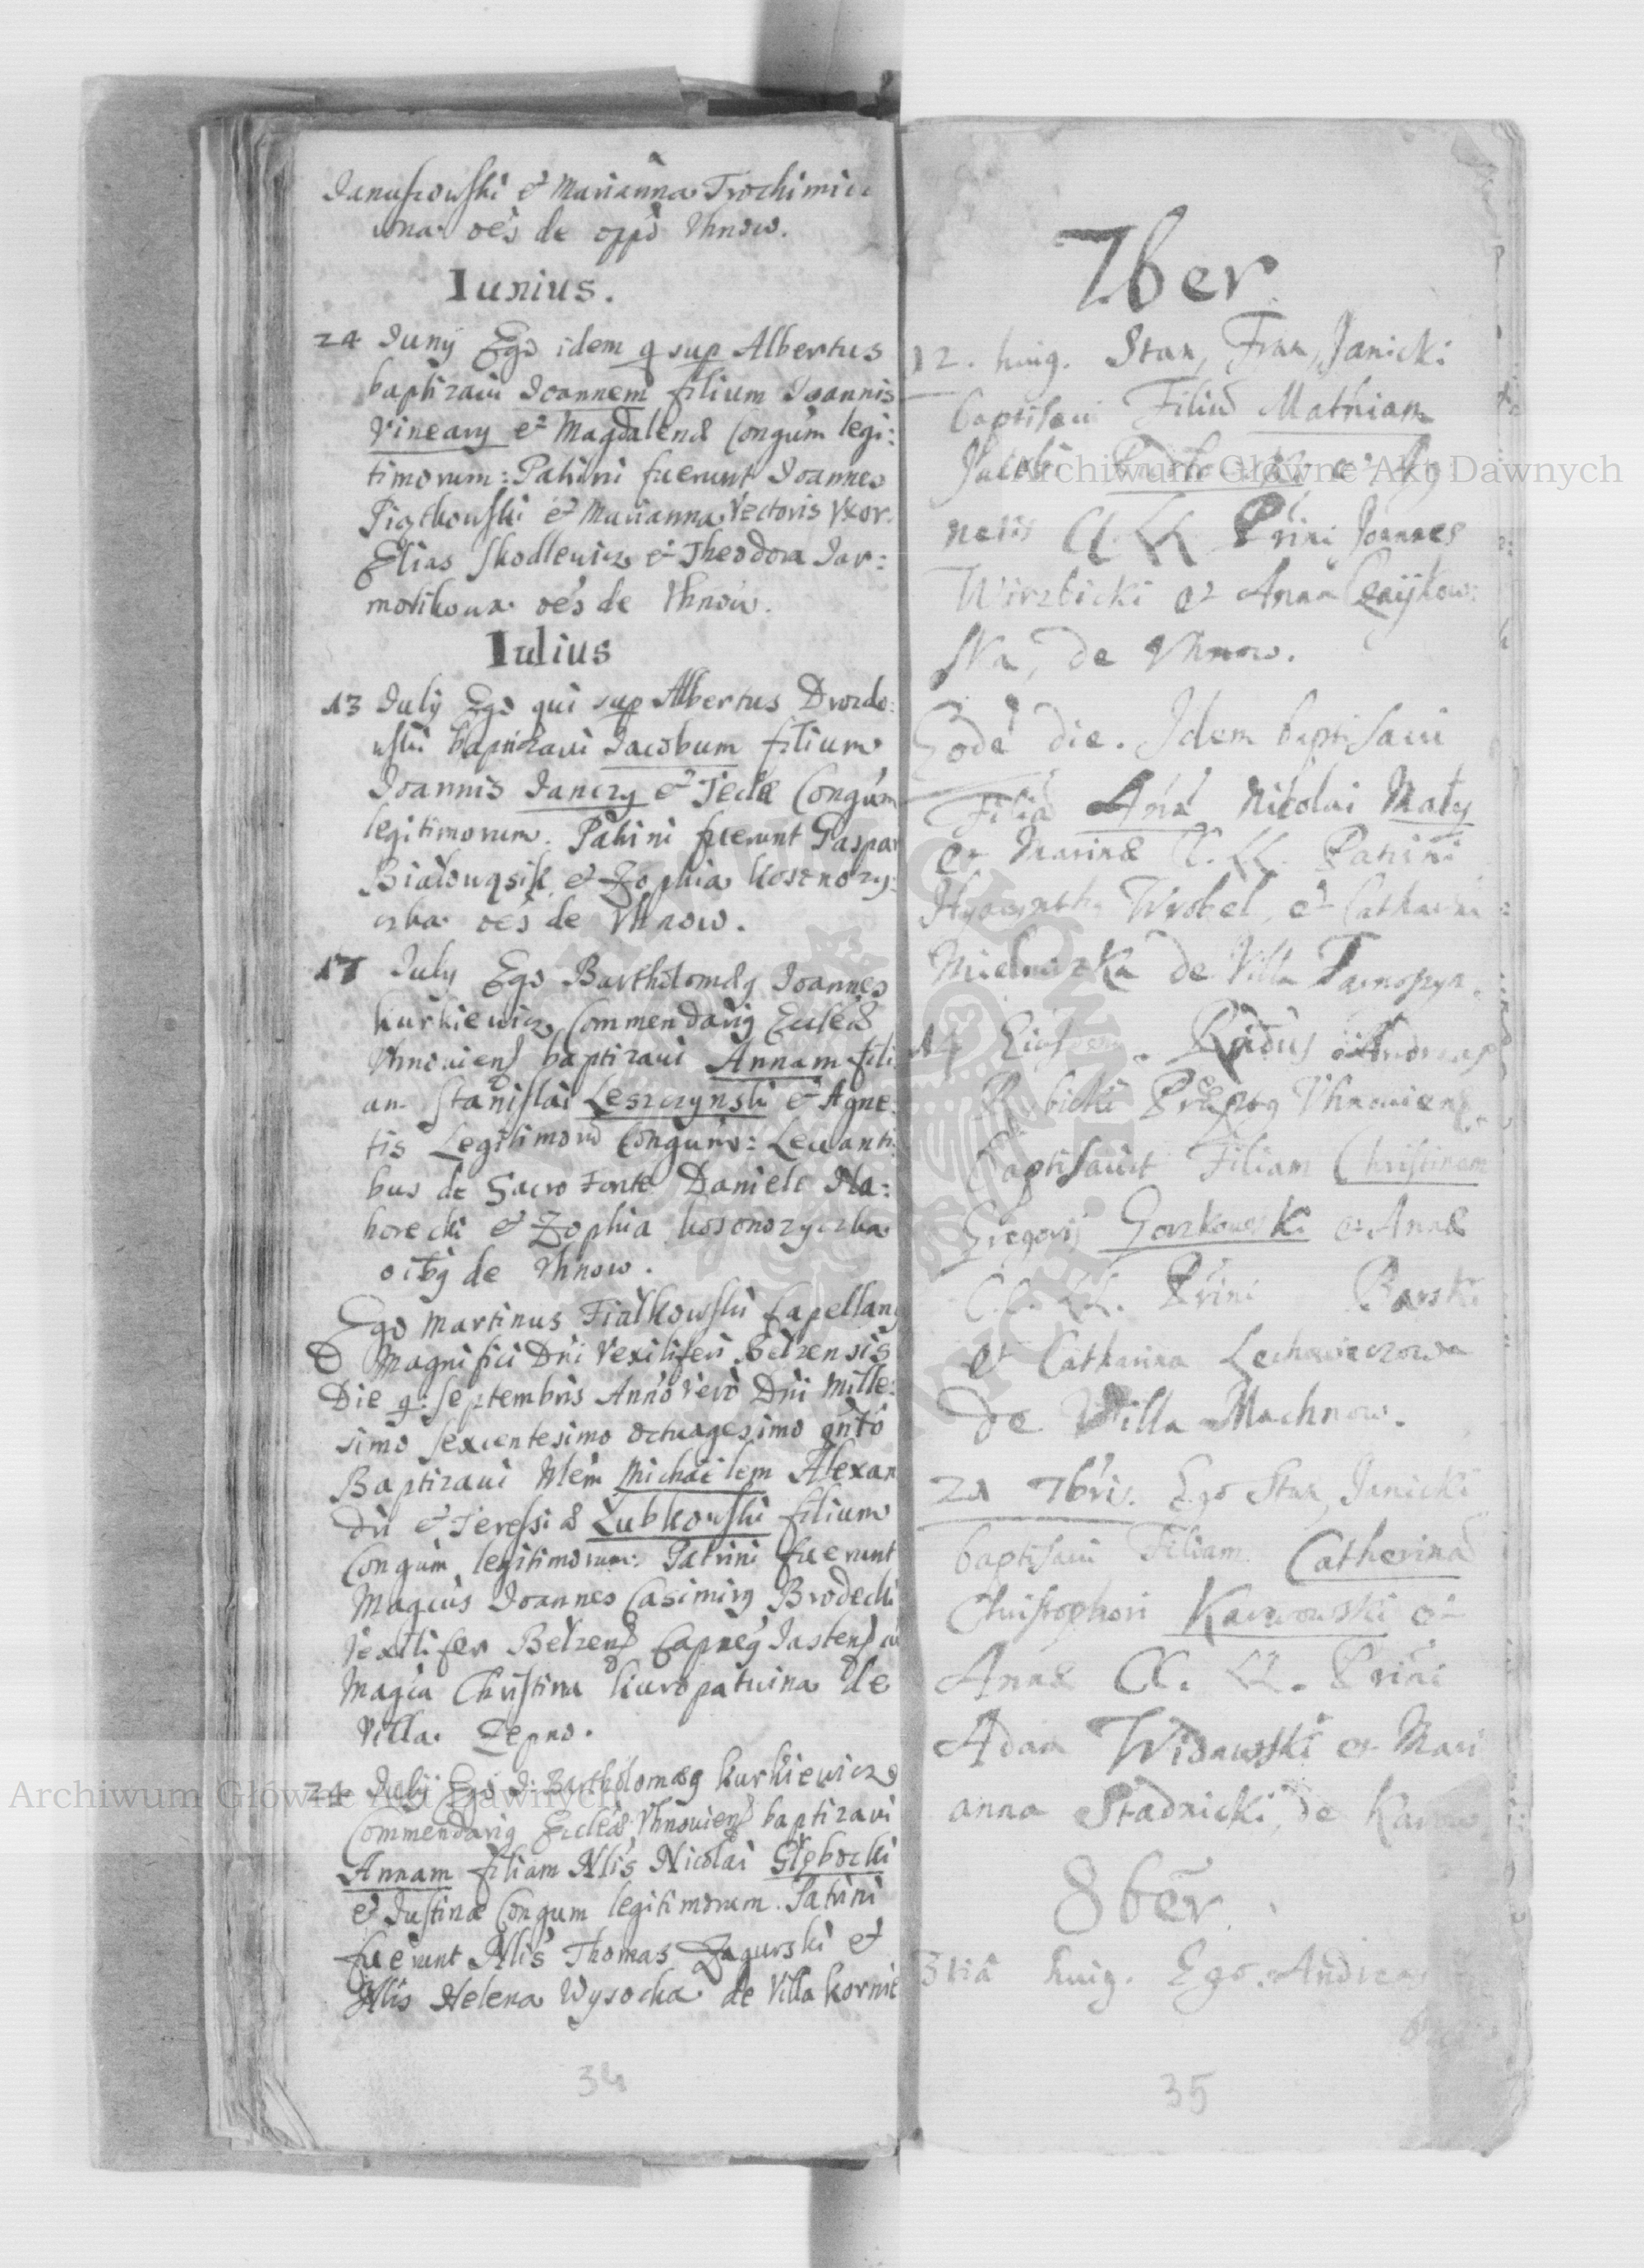 Januszowski et Marianna Trochimic
wna oes de oppo Vhnow.
Iunius.
24 Juny Ego idem q sup Albertus
baptizavi Joannem filium Joannis
Vineary et Magdalenæ Congum legi:
timorum: Patrini fuerunt Joannes
Piątkowski et Marianna Vectoris Vxor.
Elias Skodlewicz et Theodora Jar:
motikowa oes de Vhnow.
Iulius
13 July Ego qui sup Albertus Drozdo:
wski baptizavi Jacobum filium
Joannis Janczy et Teclæ Congum
legitimorum. Patrini fuerunt Gaspar
et Zophia
oes de Vhnow.
17 July Ego Bartholomæg Joannes
Kurkiewicz Commendarig Eccleæ
Vhnoviens baptizavi Annam fili
am Stanislai Leszczynski et Agne:
tis Legitimorū Congum: Levanti:
bus de Sacro Fonte Daniele Na:
horecki et Zophia kosonozyczka
oibg de Vhnow.
Ego Martinus Fiałkowski Capellang
Magnifici Dni Vexiliferi Belzensis
Die 9: Septembris Anno vero Dni Mille:
simo sexcentesimo octuagesimo qnto
Baptizavi Michaelem Alexan
dri et Teressiæ Lubkowski filium
Congum legitimorum. Patrini fuerunt
Magcus Joannes Casimirg Brodecki
Vexilifer Belzens Capneg Jastens
Magca Christina Kuropatwina de
Villa Depno.
24 July Ego J: Bartholomæg Kurkiewicz
Commendarig Eccleæ Vhnoviens baptizavi
Annam filiam Nlis Nicolai Głębocki
et Justinæ Congum legitimorum. Patrini
fuerunt Nlis Thomas Zagurski et
Nlis Helena Wysocka de Villa Kornie
34
7ber
12. huig. Stan, Fran, Janicki
baptisavi Filiū Mathiam
Jacobi et Ag
netis CC. LL. Prini Joannes
Wirzbicki et Anna Czaijkow:
ska, de Vhnow.
Eode die. Idem baptisavi
Filiā Anā Nicolai Mały
et Marinæ C. LL. Patrini
Hyacynth Wrobel, et Catharina
Mielniczka de Villa Tarnoszyn.
14 Rndus Andreas
Rybicki Prepog Vhnoviens.
baptisavit Filiam Christinam
Gregorij Gorzkowski et Annæ
CC. LL. Prini Barski
et Catharina Lechowiczowa
de Villa Machnow.
21 7bris. Ego Stan, Janicki
baptisavi Filiam Catherinā
Christophori Karwowski et
Annæ CC. LL. Prini
Adam Widawski et Mari
anna Stadnicki, de Karow
8ber.
31iā huig. Ego Andreas
35
Archiwum Główne Akt Dawnych
Archiwum Główne Akt Dawnych